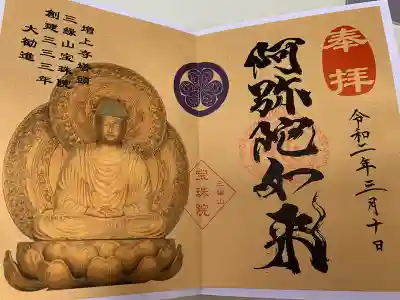 奉拝
阿弥陀如来
令和二年三月十日
三縁山
宝珠院
増上寺塔頭
三縁山宝珠院
創建三三三年
大勧進